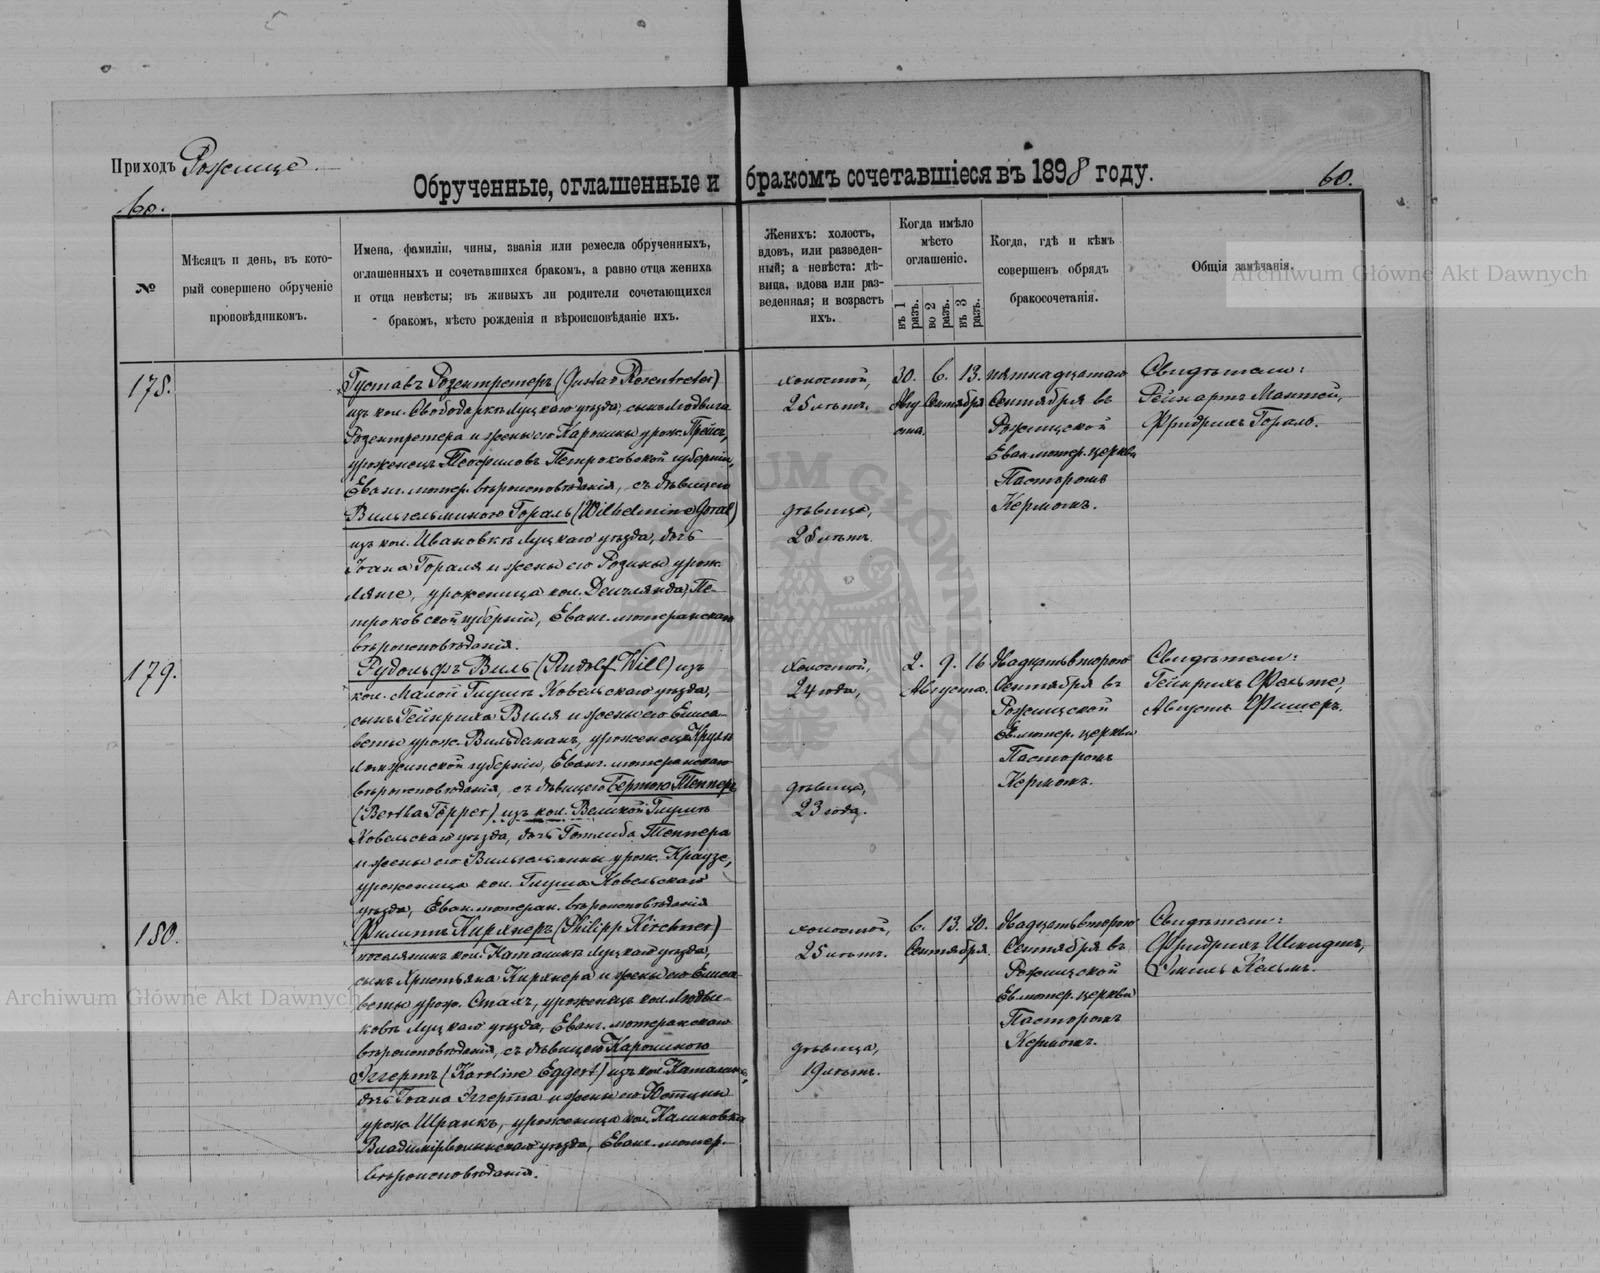 Приходъ Рожище.
Обрученные, оглашенные и бракомъ сочетавшіеся въ 1898 году.
60.
60.
№
Мѣсяцъ и день, въ кото-
рый совершено обрученіе
проповѣдникомъ.
Имена, фамиліи, чины, званія или ремесла обрученныхъ,
оглашенныхъ и сочетавшихся бракомъ, а равно отца жениха
и отца невѣсты; въ живыхъ ли родители сочетающихся
бракомъ, мѣсто рожденія и вѣроисповѣданіе ихъ.
Женихъ: холостъ,
вдовъ, или разведен-
ный; а невѣста: дѣ-
вица, вдова или раз-
веденная; и возрастъ
ихъ.
Когда имѣло
мѣсто
оглашеніе.
въ 1 разъ.
во 2 разъ.
въ 3 разъ.
Когда, гдѣ и кѣмъ
совершенъ обрядъ
бракосочетанія.
Общія замѣчанія.
178.
Густавъ Розентретеръ (Gustav Rosentreter)
изъ кол. Свободарка Луцкаго уѣзда, сынъ Людвига
Розентретера и жены его Каролины урож. Прейсъ,
уроженецъ Теофиловъ Петроковской губерніи,
Еванг. лютер. вѣроисповѣданія, съ дѣвицею
Вильгельминою Гораль (Wilhelmine Goral)
изъ кол. Ивановка Луцкаго уѣзда, дочь
Іоана Гораля и жены его Розины урож.
Лянге, уроженица кол. Пе-
троковской губерніи, Еванг. лютеранскаго
вѣроисповѣданія.
холостой,
25 лѣтъ.
дѣвица,
25 лѣтъ.
30. 6. 13.
Авгу Сентября
ста.
пятнадцатаго
Сентября въ
Рожищской
Еван. лютер. церкви
Пасторомъ
Кермомъ.
Свидѣтели:
Рейнгартъ Мантей,
Фридрихъ Гораль.
179.
Рудольфъ Виль (Rudolf Will) изъ
кол. Малой Глушъ Ковельскаго уѣзда,
сынъ Гейнриха Виля и жены его Елиса-
веты урож. Вильдеманъ, уроженецъ
Ломжинской губерніи, Еванг. лютеранскаго
вѣроисповѣданія, съ дѣвицею Бертою Тепперъ
(Bertha Töpper) изъ кол. Великой Глушъ
Ковельскаго уѣзда, дочь Готлиба Теппера
и жены его Вильгельмины урож. Краузе,
уроженица кол. Глуша Ковельскаго
уѣзда, Еван. лютеран. вѣроисповѣданія
холостой,
24 года,
дѣвица,
23 года.
2. 9. 16
Августа.
двадцать второго
Сентября въ
Рожищской
Ев. лютер. церкви
Пасторомъ
Кермомъ.
Свидѣтели:
Гейнрихъ Фельте,
Августъ Фишеръ.
180.
Филиппъ Кирхнеръ (Philipp Kirchner)
поселянинъ кол. Каталинъ Луцкаго уѣзда,
сынъ Христьяна Кирхнера и жены его Елиса-
веты урож. Сталъ, уроженецъ кол. Людви-
ковъ Луцкаго уѣзда, Еванг. лютеранскаго
вѣроисповѣданія, съ дѣвицею Каролиною
Эггертъ (Karoline Eggert) изъ кол.
дочь Іоана Эггерта и жены его Юстины
урож. Шранкъ, уроженица кол. Калиновка
Владимірволынскаго уѣзда, Еванг. лютер.
вѣроисповѣданія.
холостой,
25 лѣтъ.
дѣвица,
19 лѣтъ.
6. 13. 20.
Сентября.
двадцать второго
Сентября въ
Рожищской
Ев. лютер. церкви
Пасторомъ
Кермомъ.
Свидѣтели:
Фридрихъ Шмидтъ,
Эмиль Кельмъ.
Archiwum Główne Akt Dawnych
Archiwum Główne Akt Dawnych